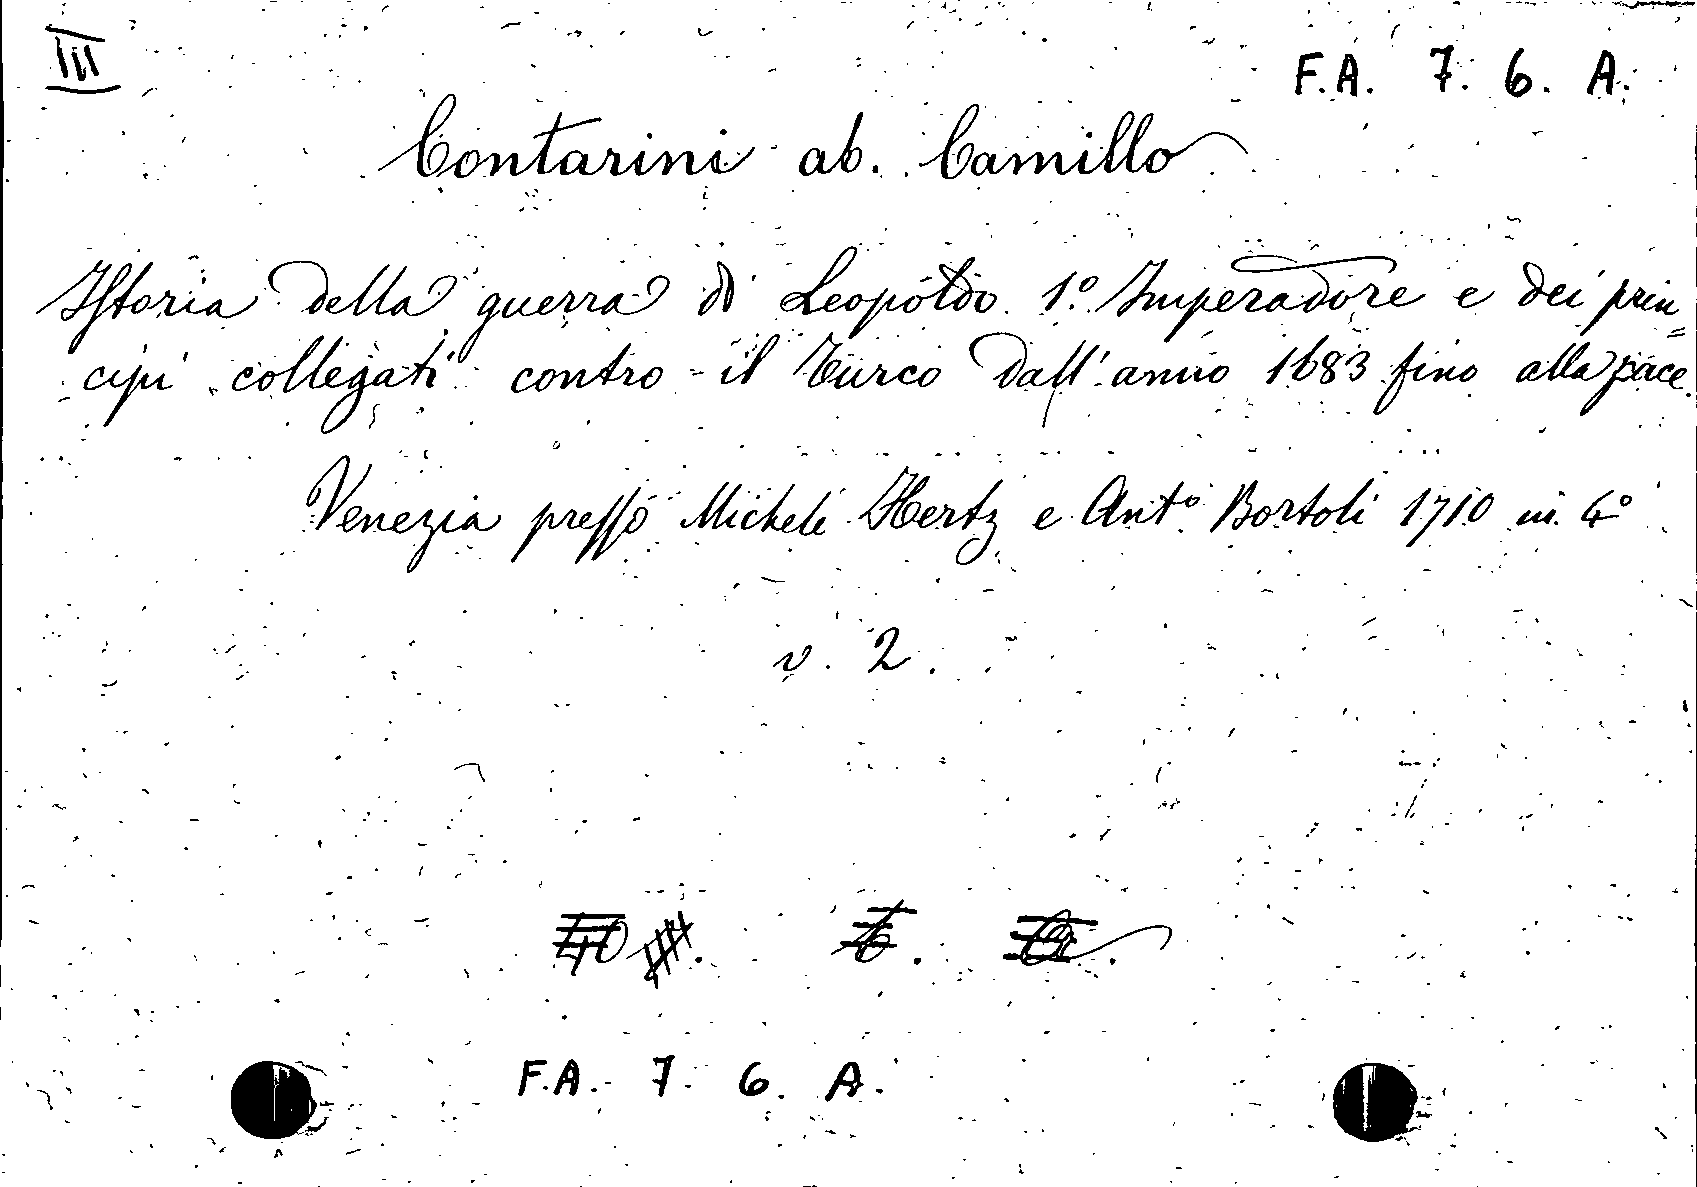 III
F.A. 7. 6. A.
Contarini ab. Camillo
Istoria della guerra di Leopoldo 1º Imperadore e dei prin=
cipi collegati contro il Turco dall'anno 1683 fino alla pace.
Venezia presso Michele Hertz e Antº Bortoli 1710 in 4º
v. 2.
F.A. 7. 6. A.